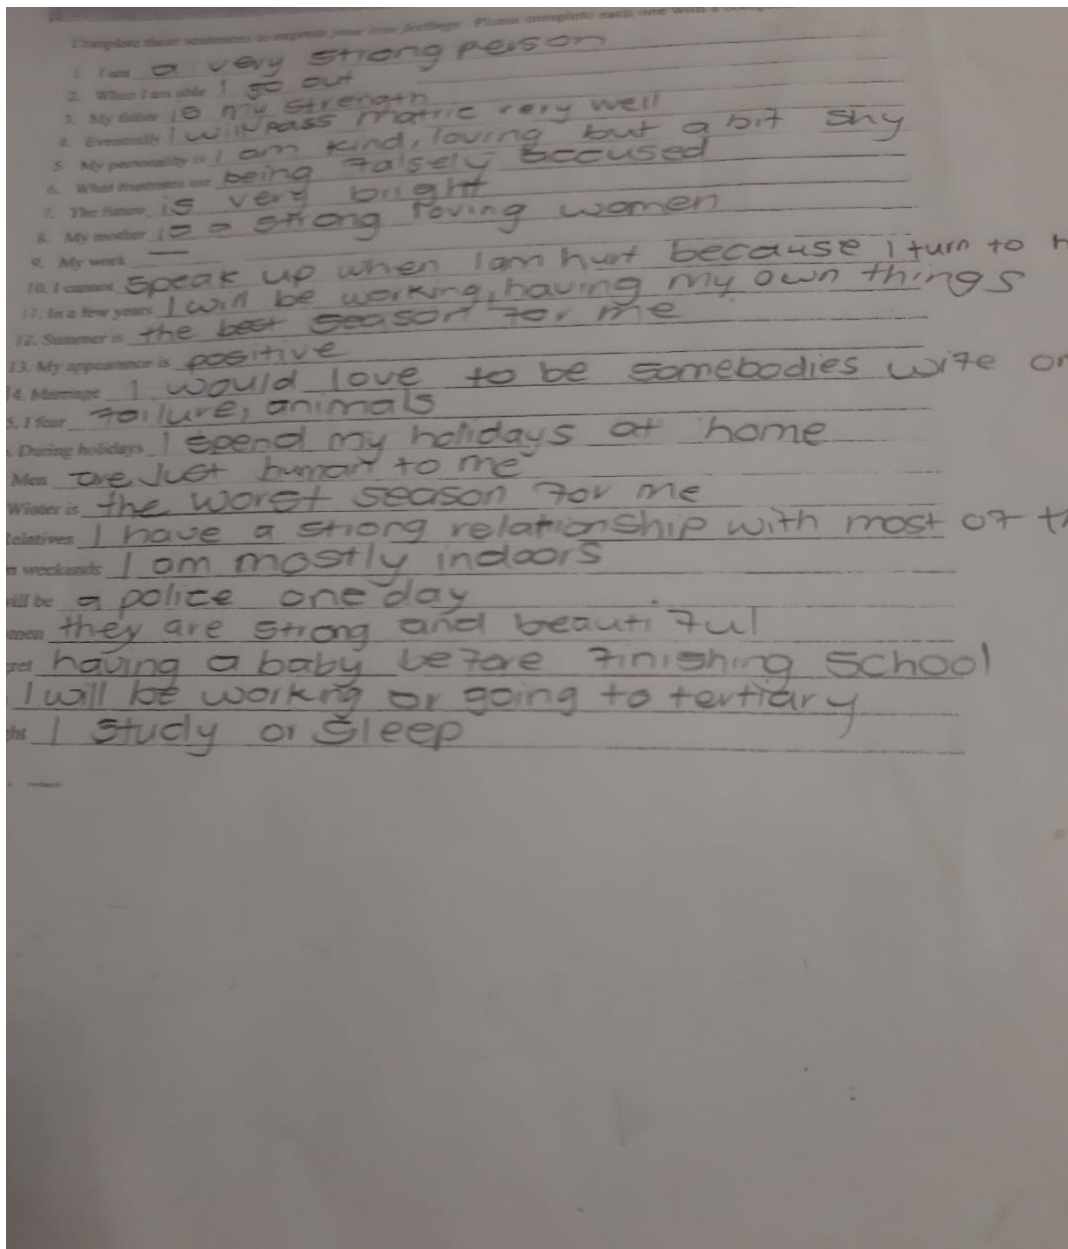 Complete these sentences to express your true feelings. Please complete each one
1. I am a very strong person
2. When I am able I go out
3. My father is my strength
4. Eventually I will pass matric very well
5. My personality is I am kind, loving but a bit shy
6. What frustrates me being falsely accused
7. The future is very bright
8. My mother is a strong loving women
9. My week —
10. I cannot speak up when I am hurt because I turn to
11. In a few years I will be working, having my own things
12. Summer is the best season for me
13. My appearance is positive
14. Marriage I would love to be somebodies wife
5. I fear failure, animals
. During holidays I spend my holidays at home
Men are Just human to me
Winter is the worst season for me
Relatives I have a strong relationship with most of
n weekends I am mostly indoors
ill be a police one day
men they are strong and beautiful
ret having a baby before finishing school
I will be working or going to tertiary
ht I study or sleep